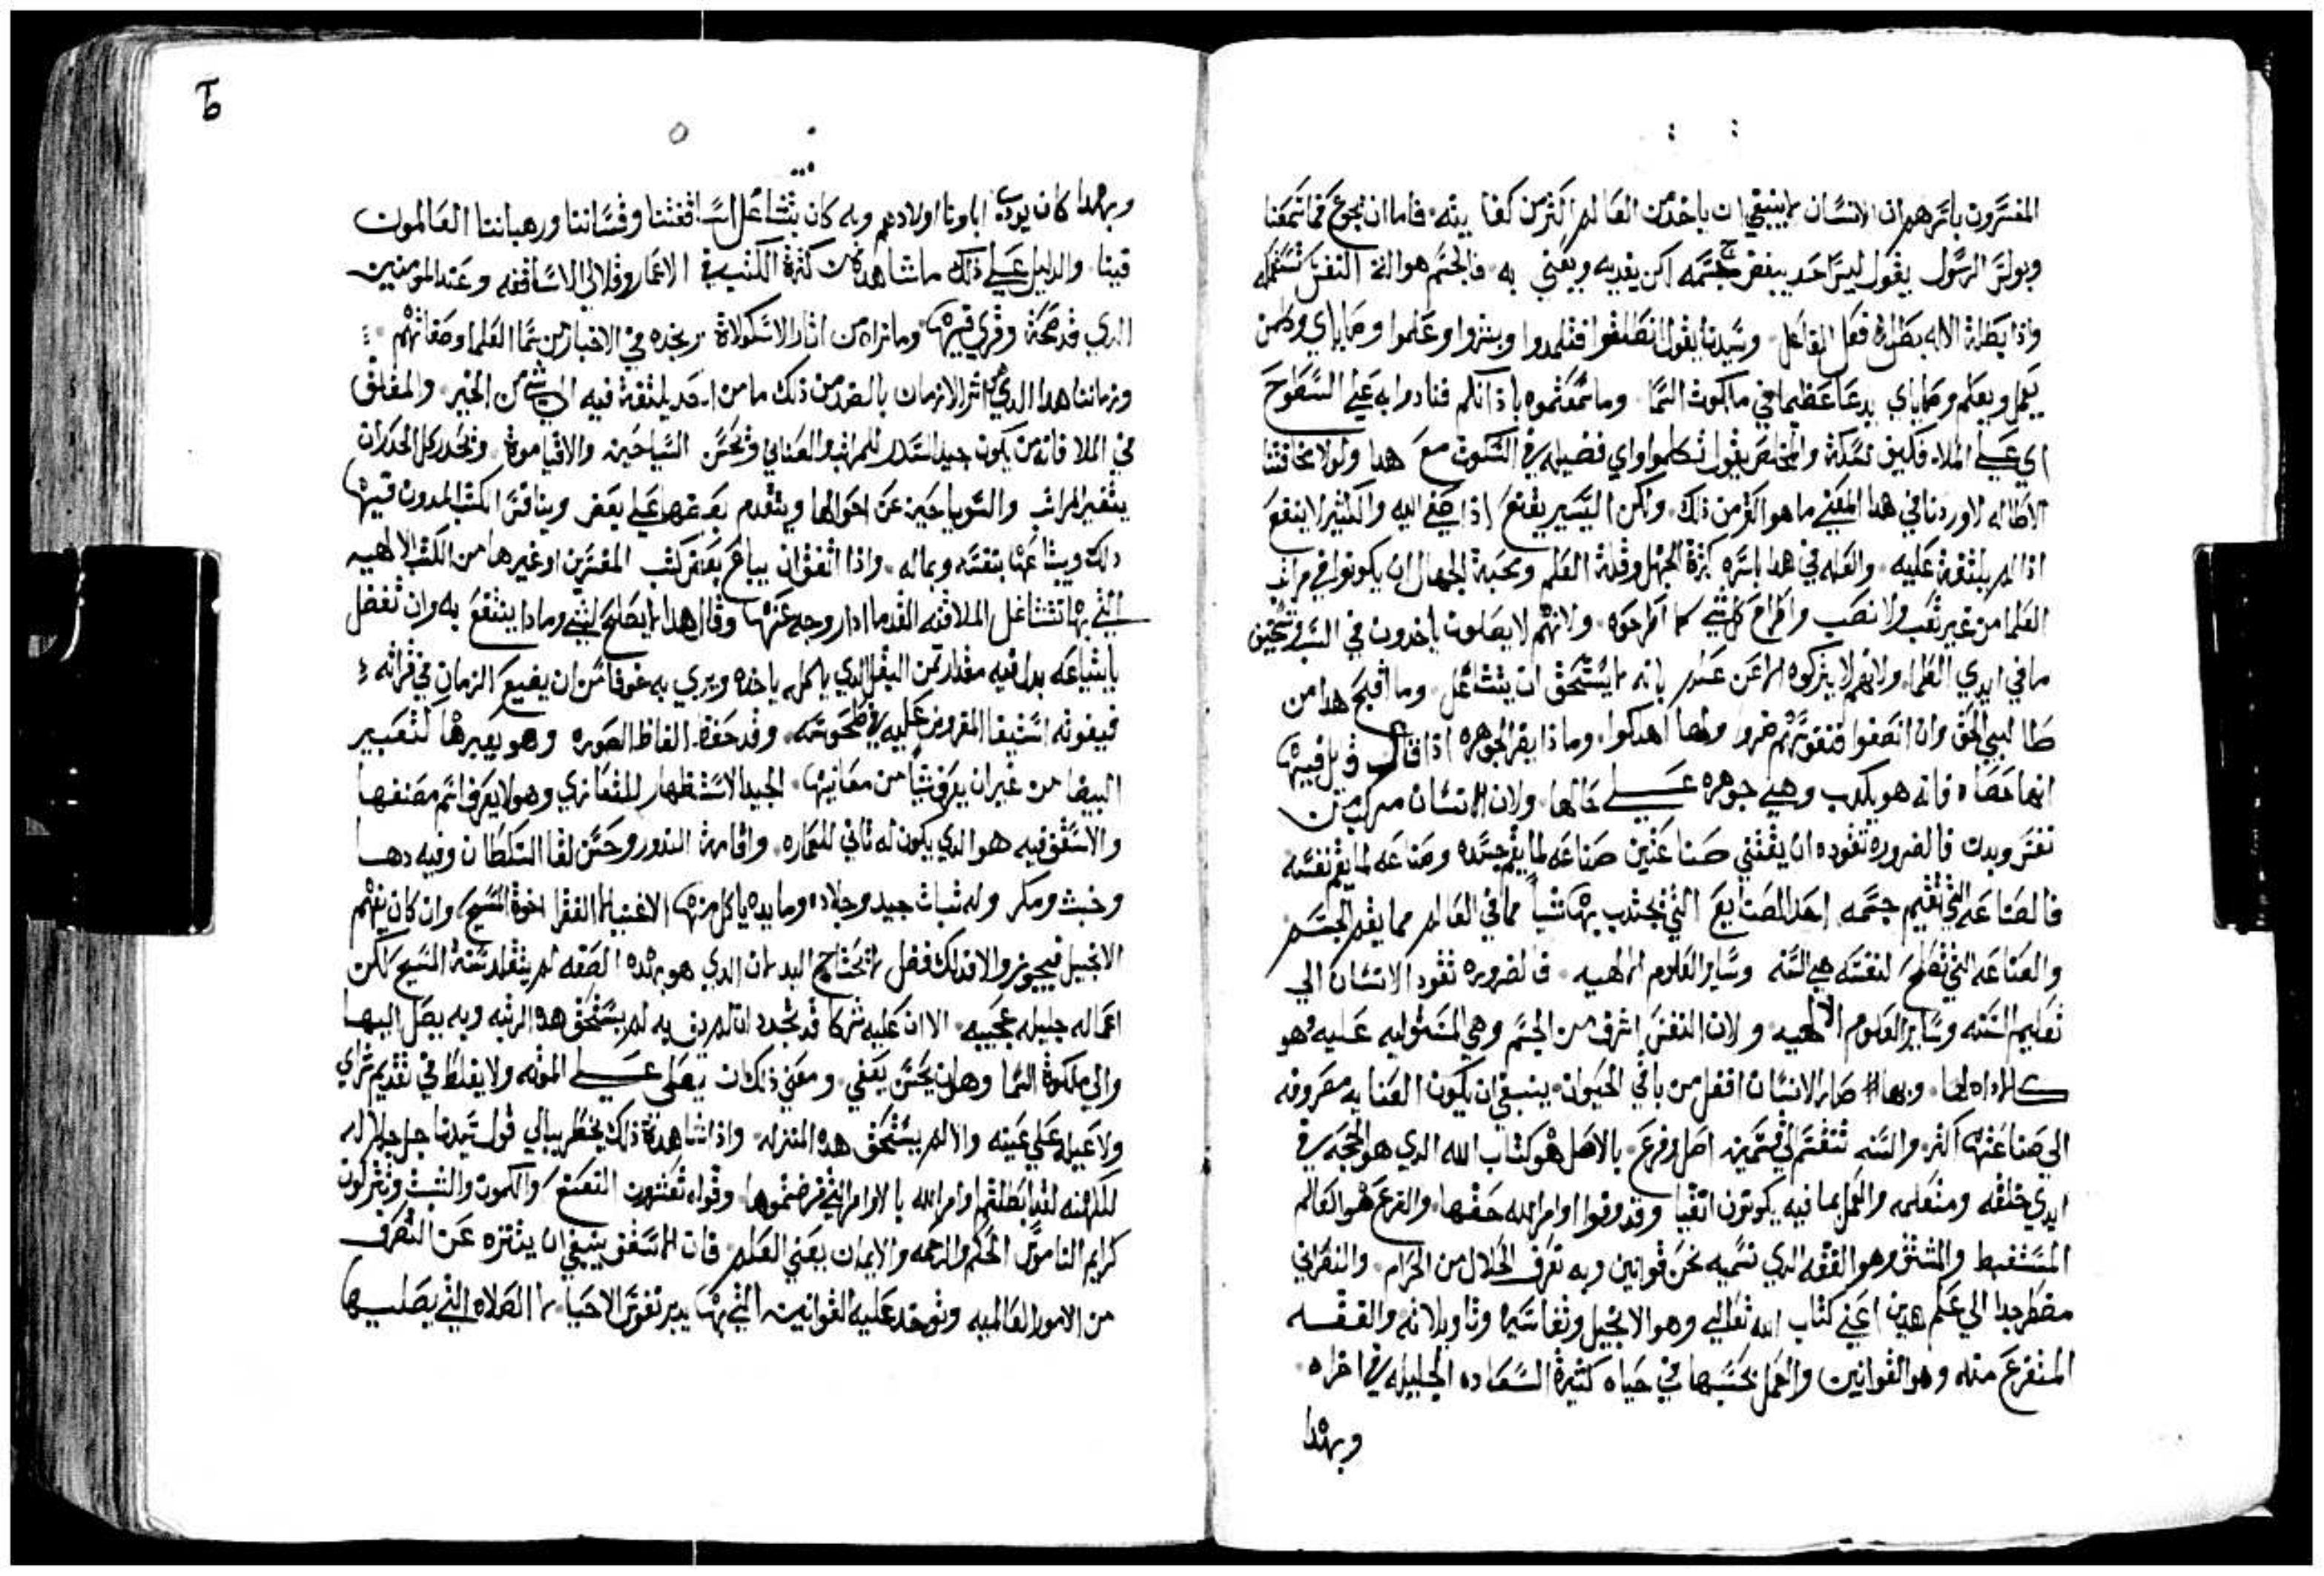 المفسرون باسرهم ان الانسان لا ينبغي ان ياخد من العالم اكثر من كفا بيته فاما ان نجوع فما سمعنا
وبولس الرسول يقول ليس احد يبغض جسمه لكن يغديه ويعني به فالجسم هو الة النفس تستعمله
واذا بطلة الاله بطل فعل الفاعل وسيدنا يقول انطلقوا فتلمدوا وبشروا وعلموا وصاياي ومن
يعمل ويعلم وصاياي يدعا عظيما في ملكوت السما وما سمعتموه باذانكم فنادوا به علي السطوح
اي علي الملا فكيف نسكت والمخلص يقول تكلموا واي فضيله في السكوت مع هدا ولولا مخافتنا
الاطاله لاوردنا في هدا المعني ما هو اكثر من ذلك ولكن اليسير يقنع اذا صغي اليه والكثير لا ينفع
اذا لم يلتفت عليه والعله في هدا باسره كثرة الجهل وقلة العلم ومحبة الجهال ان يكونوا في مراتب
العلما من غير تعب ولا نصب واطراح كل شي كما اطرحوه ولانهم لا يصلون ياخدون في
ما في ايدي العلما ولانهم لا يتركوه الا عن عدر بانه لا يستحق ان يتشاغل وما اقبح هدا من
طالبي الحق وان انصفوا فنفوسهم ضرو ولها اهلكوا وماذا يضر الجوهره اذا قال قايل فيها
انها حصاه فانه هو يكدب وهي جوهره علي حالها ولان الانسان مركب من
نفس وبدن فالضروره تقوده ان يقتني صناعتين صناعه لما يقيم جسده وصناعه لما يقيم نفسه
فالصناعه التي تقيم جسمه احد الصنايع التي يجتدب بها شيا مما في العالم مما يقيم الجسم
والصناعه التي تصلح لنفسه هي السنه وساير العلوم الالهيه فالضروره تقود الانسان الي
تعليم السنه وساير العلوم الالهيه ولان النفس اشرف من الجسم وهي المستوليه عليه فهو
كالاداه لها وبها صار الانسان افضل من باقي الحيوان ينبغي ان يكون العنايه مصروفه
الي صناعتها اكثر والسنه تنقسم الي قسمين اصل وفرع بالاصل هو كتاب الله الدي هو الحجه في
ايدي خلقه ومتعلمه والعمل بما فيه يكونون اتقيا وقد وفوا اوامر الله حقها والفرع هو العالم
المستنبط والمشتق وهو الفقه الدي نسميه نحن قوانين وبه نعرف الحلال من الحرام والنصراني
مضطر جدا الي علم هدين اعني كتاب الله تعالي وهو الانجيل وتفاسيره وتاويلاته والفقه
المتفرع منه وهو القوانين والعمل بحسبها في حياه كثيرة السعاده الجليله في اخراه
وبهدا
وبهدا كان يودب اباونا اولادهم وبه كان يتشاغل اساقفتنا وقساننا ورهباننا العالمون
فينا والدليل علي ذلك ما شاهدناه من كثرة الكتب في الاعمار وقلالي الاساقفه وعند المومنين
الدي قد صحة وقري فيها وما نراه من اثار الاسكولاة ونجده في الاخبار من سما العلما وصفاتهم
وزماننا هدا الدي هو اشر الازمان بالضد من ذلك ما من احد يلتفت فيه الي شي من الخير والمفلق
في الملا فانه من يكون جيد السرد للمراتب العناني وتحسن السياحين والاقياموة وتحدر كل الحدران
يتغير المراتب والسوباحين عن احوالها ويتقدم بعضها علي بعض ويناقش الكتب المدون فيها
دلك ويبتاعها بنفسه وبماله واذا اتفق ان يباع بعض كتب المفسرين او غيرها من الكتب الالهيه
التي بها تتشاغل الملافنه القدما ادار وجهه عنها وقال هدا لا يصلح لشي وما دا ينتفع به وان تفضل
بابتياعه بدل فيه مقدار ثمن البقل الدي ياكله ياخده ويرمي به خوفا من ان يضيع الزمان في قراته
فيفوته استيفا المفروض عليه في طحوسه وقد حفظ الفاظ الصوره وهو يعبرها كتعبير
الببغا من غير ان يعرف شيا من معانيها الجيد الاستظهار للتعازي وهو لا يعرف اسم مصنفها
والاسقف فيه هو الدي يكون له تاني للعماره واقامة الندور وحسن لقا السلطان وفيه دها
وخبث ومكر وله تبات جيد وجلاده ومايده ياكل منها الاغنيا لا الفقرا اخوة المسيح وان كان يفهم
الانجيل فيجوز والا فدلك فضل لا تحتاج اليه لان الدي هو بهده الصفه لم يتقلد سنة المسيح لكن
اعماله جليله عجيبه الا ان عليه شركا قد تجدد ان لم يف به لم يستحق هده الرتبه وبه يصل اليها
والي ملكوة السما وهو ان يحسن يغني ومعني ذلك ان يصلي علي الموته ولا يغلط في تقديم
ولا عيله علي عينه والا لم يستحق هده المنزله واذا شاهدة ذلك يخطر ببالي قول سيدنا جل جلاله
للكهنه لقد ابطلتم اوامر الله بالاوامر التي فرضتموها وقوله تعشرون النعنع والكمون والشبث وتتركون
كرايم الناموس الحكم والرحمه والايمان يعني العلم فان الاسقف ينبغي ان يتنزه عن التصرف
من الامور العالميه وتوخد عليه القوانين التي بها يدبر نفوس الاحيا لا الصلاه التي يصليها